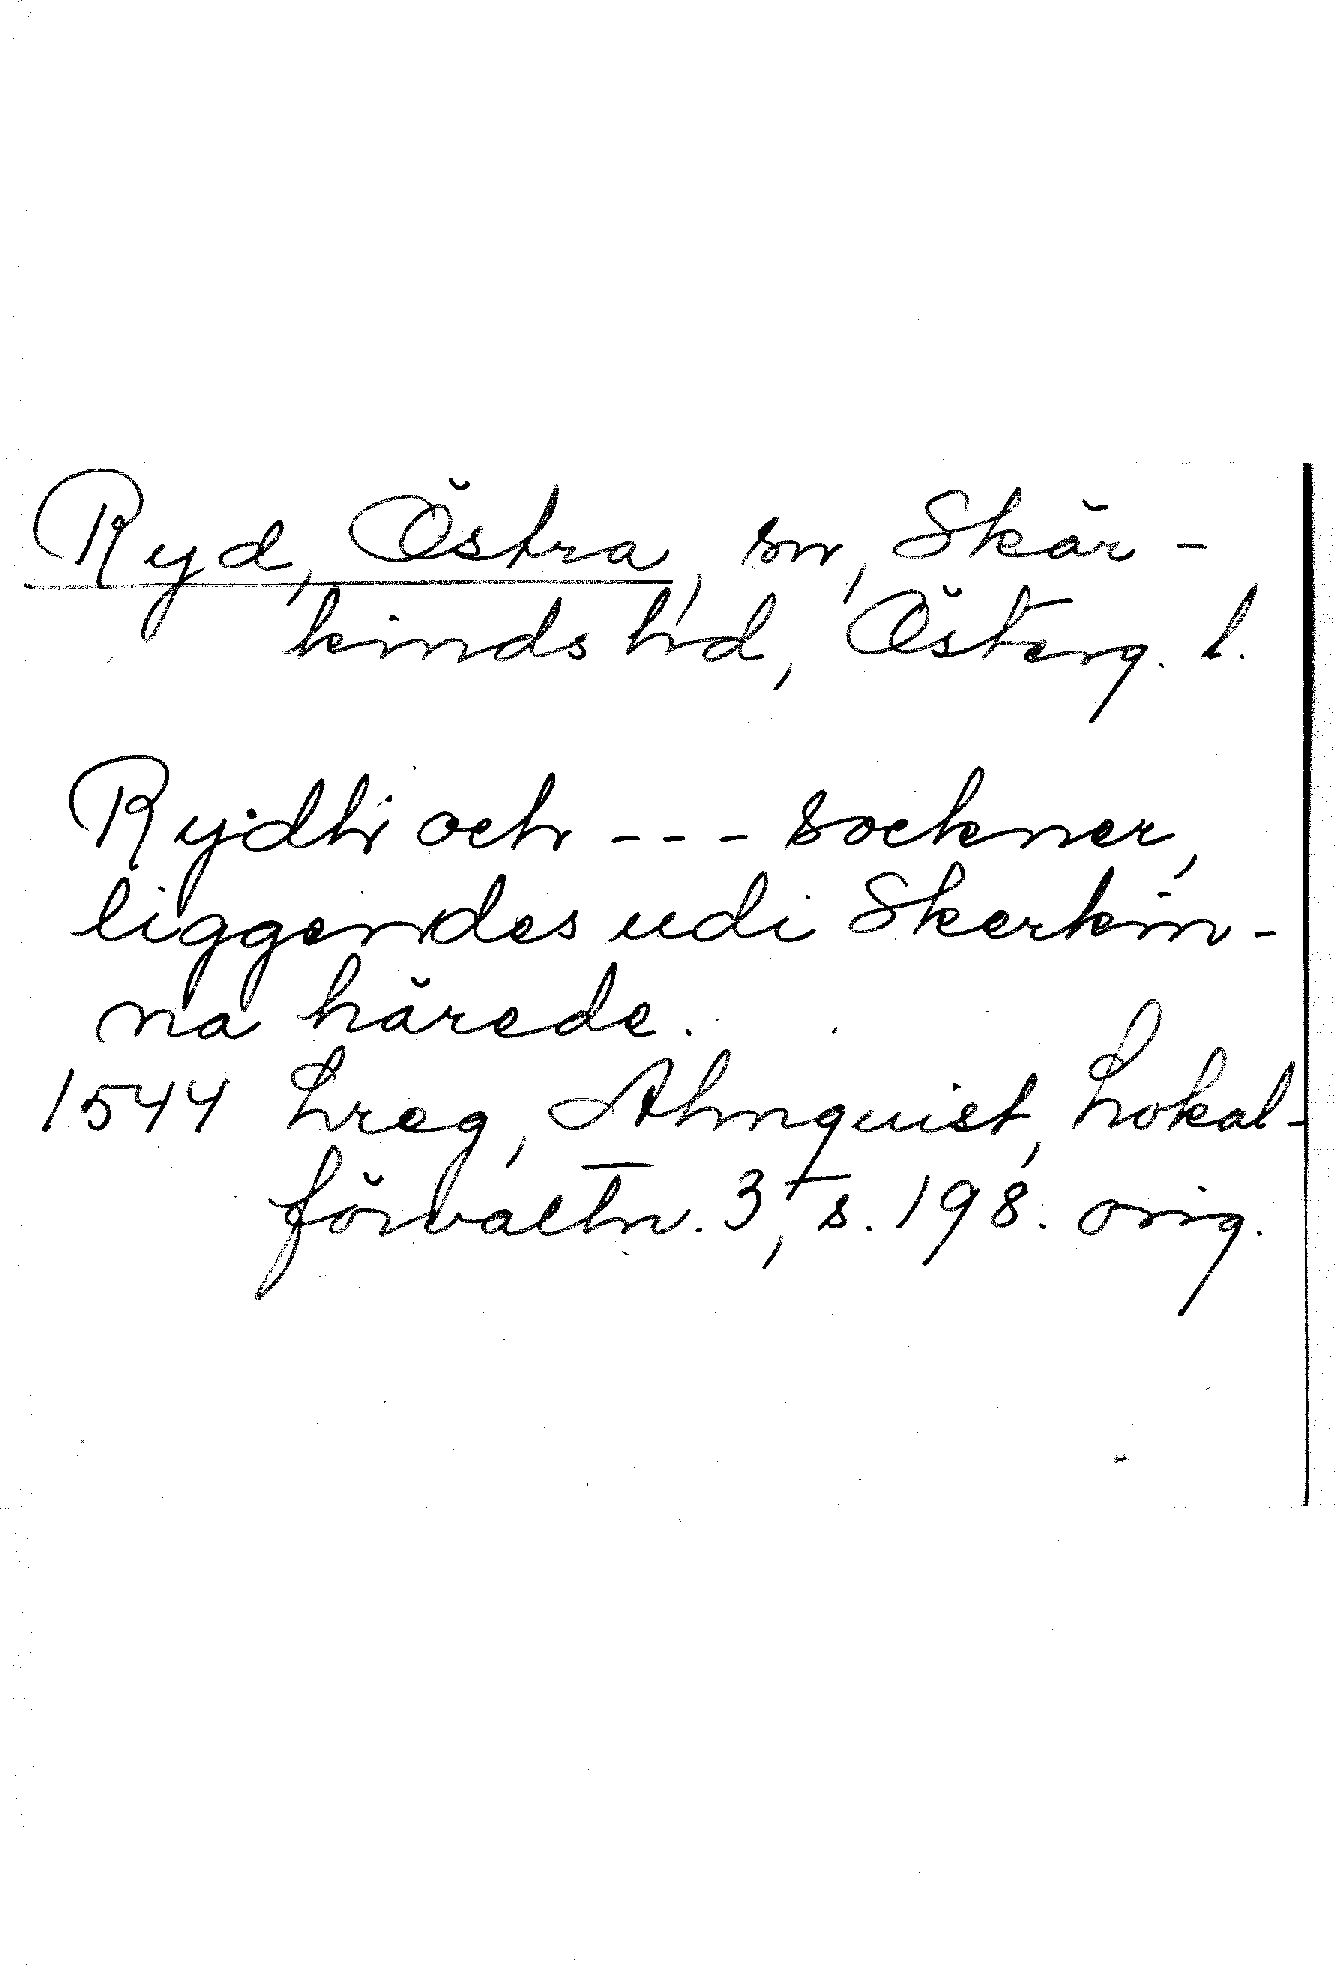 Ryd, Östra, sn, Skär-
kinds hd, Österg. l.
Rydh och --- sockner,
liggendes udi Skerkin-
na härede.
1544 Lreg, Almquist, Lokal-
förvaltn. 3, s. 198. orig.